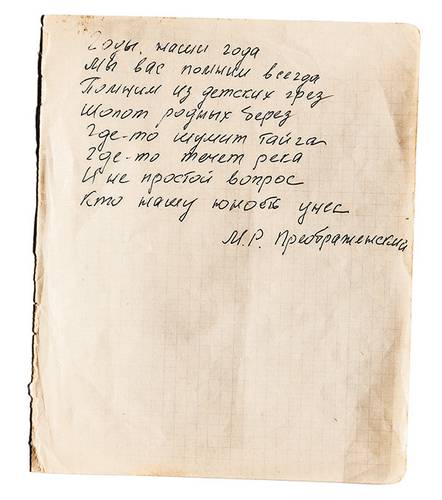 Годы, наши года
Мы вас помним всегда
Помним из детских грез
Шопот родных берез
Где-то шумит тайга
Где-то течет река
И не простой вопрос
Кто нашу юность унес
М.Р. Преображенский